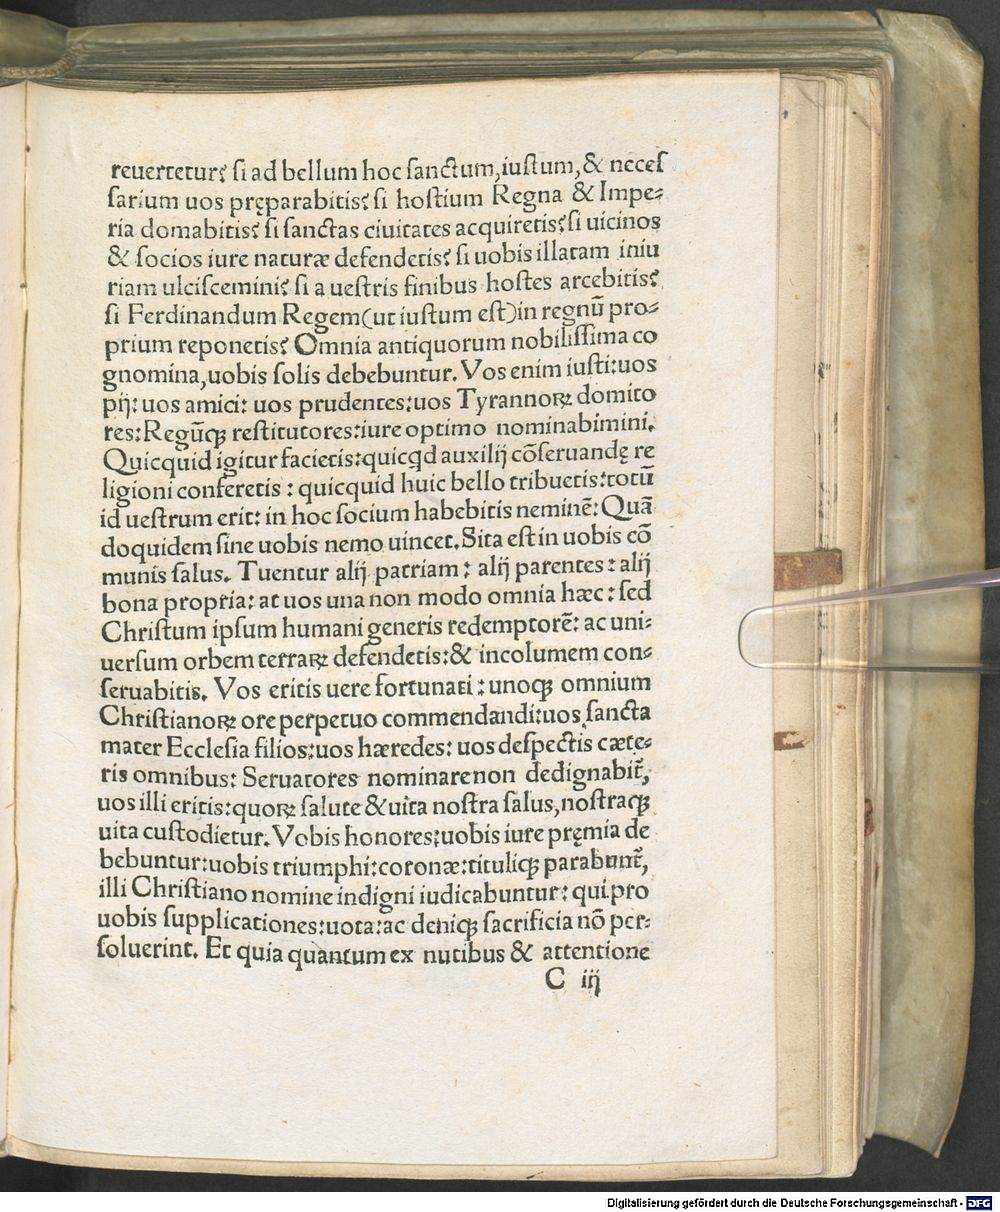 reuertetur? ſi ad bellum hoc ſanctum, iuſtum, & neceſ
ſarium uos pręparabitis? ſi hoſtium Regna & Impe-
ria domabitis? ſi ſanctas ciuitates acquiretis? ſi uicinos
& ſocios iure naturæ defendetis? ſi uobis illatam iniu
riam ulciſcemini? ſi a ueſtris finibus hoſtes arcebitis?
ſi Ferdinandum Regem (ut iuſtum eſt) in regnū pro-
prium reponetis? Omnia antiquorum nobiliſſima co
gnomina, uobis ſolis debebuntur. Vos enim iuſti: uos
pij: uos amici: uos prudentes: uos Tyrannoꝝ domito
res: Regūqꝫ reſtitutores: iure optimo nominabimini.
Quicquid igitur facietis: quicqd auxilij cōſeruandę re
ligioni conferetis: quicquid huic bello tribuetis: totū
id ueſtrum erit: in hoc ſocium habebitis neminē: Quā
doquidem ſine uobis nemo uincet. Sita eſt in uobis cō
munis ſalus. Tuentur alij patriam: alij parentes: alij
bona propria: at uos una non modo omnia hæc: ſed
Chriſtum ipſum humani generis redemptorē: ac uni-
uerſum orbem terraꝝ defendetis: & incolumem con-
ſeruabitis. Vos eritis uere fortunati: unoqꝫ omnium
Chriſtianoꝝ ore perpetuo commendandi: uos ſancta
mater Eccleſia filios: uos hæredes: uos deſpectis cæte-
ris omnibus: Seruatores nominare non dedignabit̃,
uos illi eritis: quoꝝ ſalute & uita noſtra ſalus, noſtraqꝫ
uita cuſtodietur. Vobis honores: uobis iure pręmia de
bebuntur: uobis triumphi: coronæ: tituliqꝫ parabunt̃,
illi Chriſtiano nomine indigni iudicabuntur: qui pro
uobis ſupplicationes: uota: ac deniqꝫ ſacrificia nō per-
ſoluerint. Et quia quantum ex nutibus & attentione
C iij
Digitalisierung gefördert durch die Deutsche Forschungsgemeinschaft - DFG